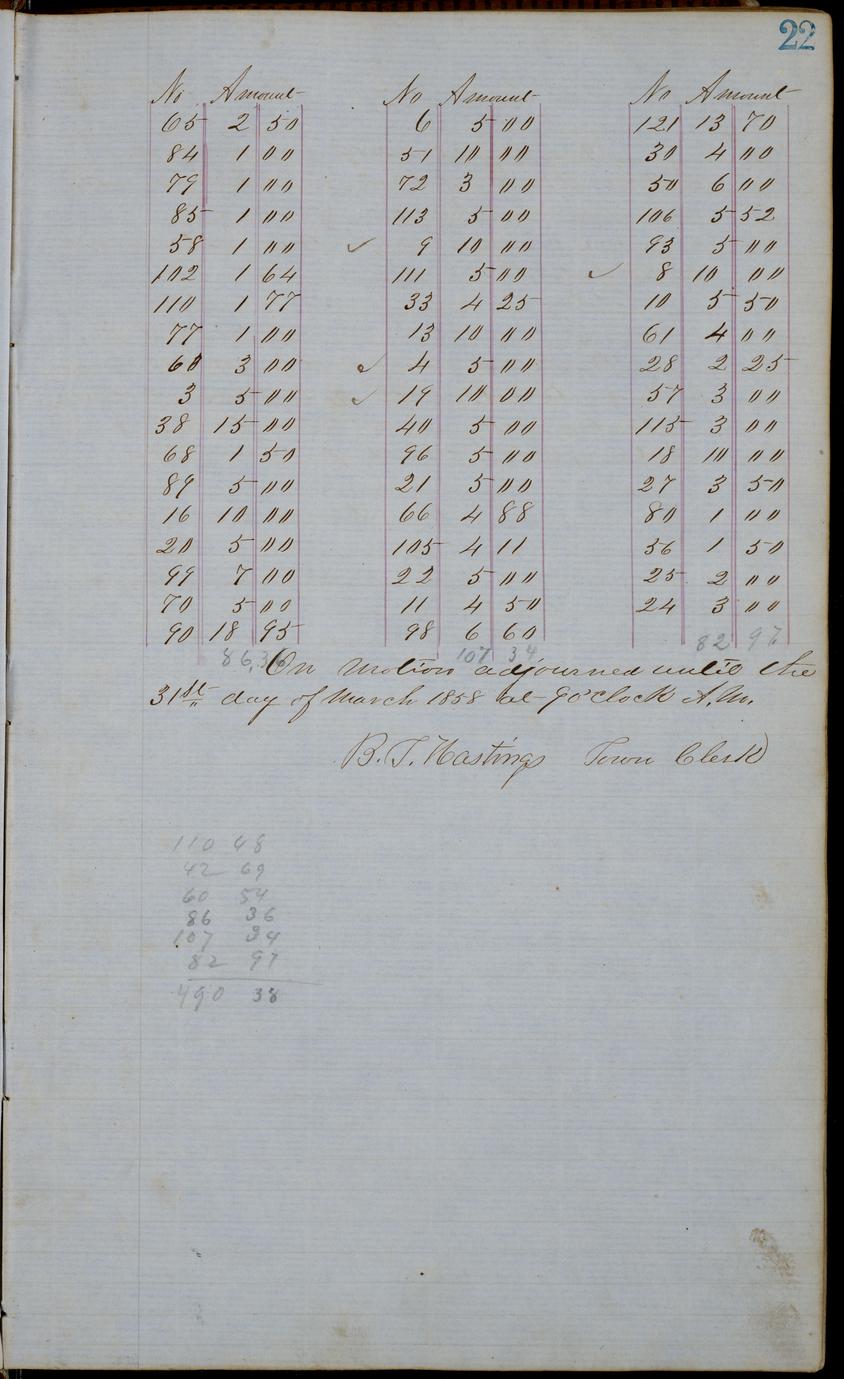 22
No Amount No Amount No Amount
65 2 50 6 5 00 121 13 70
84 1 00 51 10 00 30 4 00
79 1 00 72 3 00 50 6 00
85 1 00 113 5 00 106 5 52
58 1 00 ✓ 9 10 00 93 5 00
102 1 64 111 5 00 ✓ 8 10 00
110 1 77 33 4 25 10 5 50
77 1 00 13 10 00 61 4 00
60 3 00 ✓ 4 5 00 28 2 25
3 5 00 ✓ 19 10 00 57 3 00
38 15 00 40 5 00 115 3 00
68 1 50 96 5 00 18 10 00
89 5 00 21 5 00 27 3 50
16 10 00 66 4 88 80 1 00
20 5 00 105 4 11 36 1 50
99 7 00 22 5 00 25 2 00
70 5 00 11 4 50 24 3 00
90 18 95 98 6 60 82 97
86,36 107 34
On motion adjourned until the
31st day of March 1858 at 9 o'clock A.M.
B. T. Hastings Town Clerk
110 48
42 69
60 54
86 36
107 34
82 97
490 38